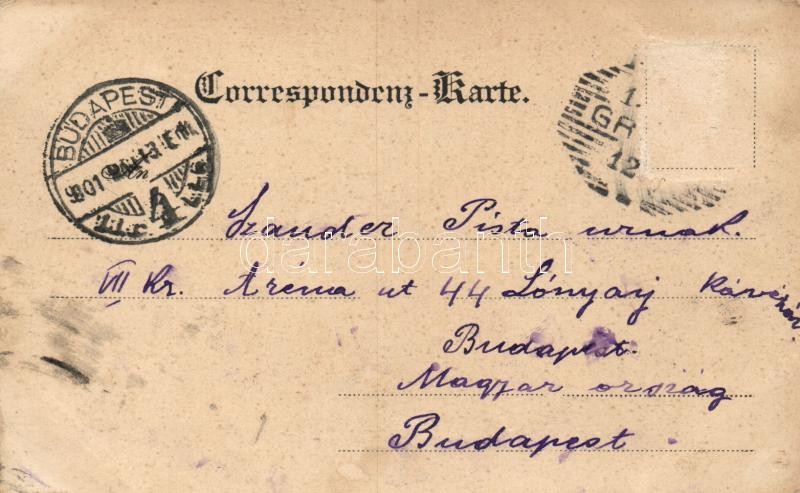 Correspondenz-Karte.
BUDAPEST
901
4
1.
GR
12
Szander Pista urnak.
VII Kr. Aréna ut 44 Lónyay Kávéház.
darabanth
Budapest.
Magyar ország
Budapest